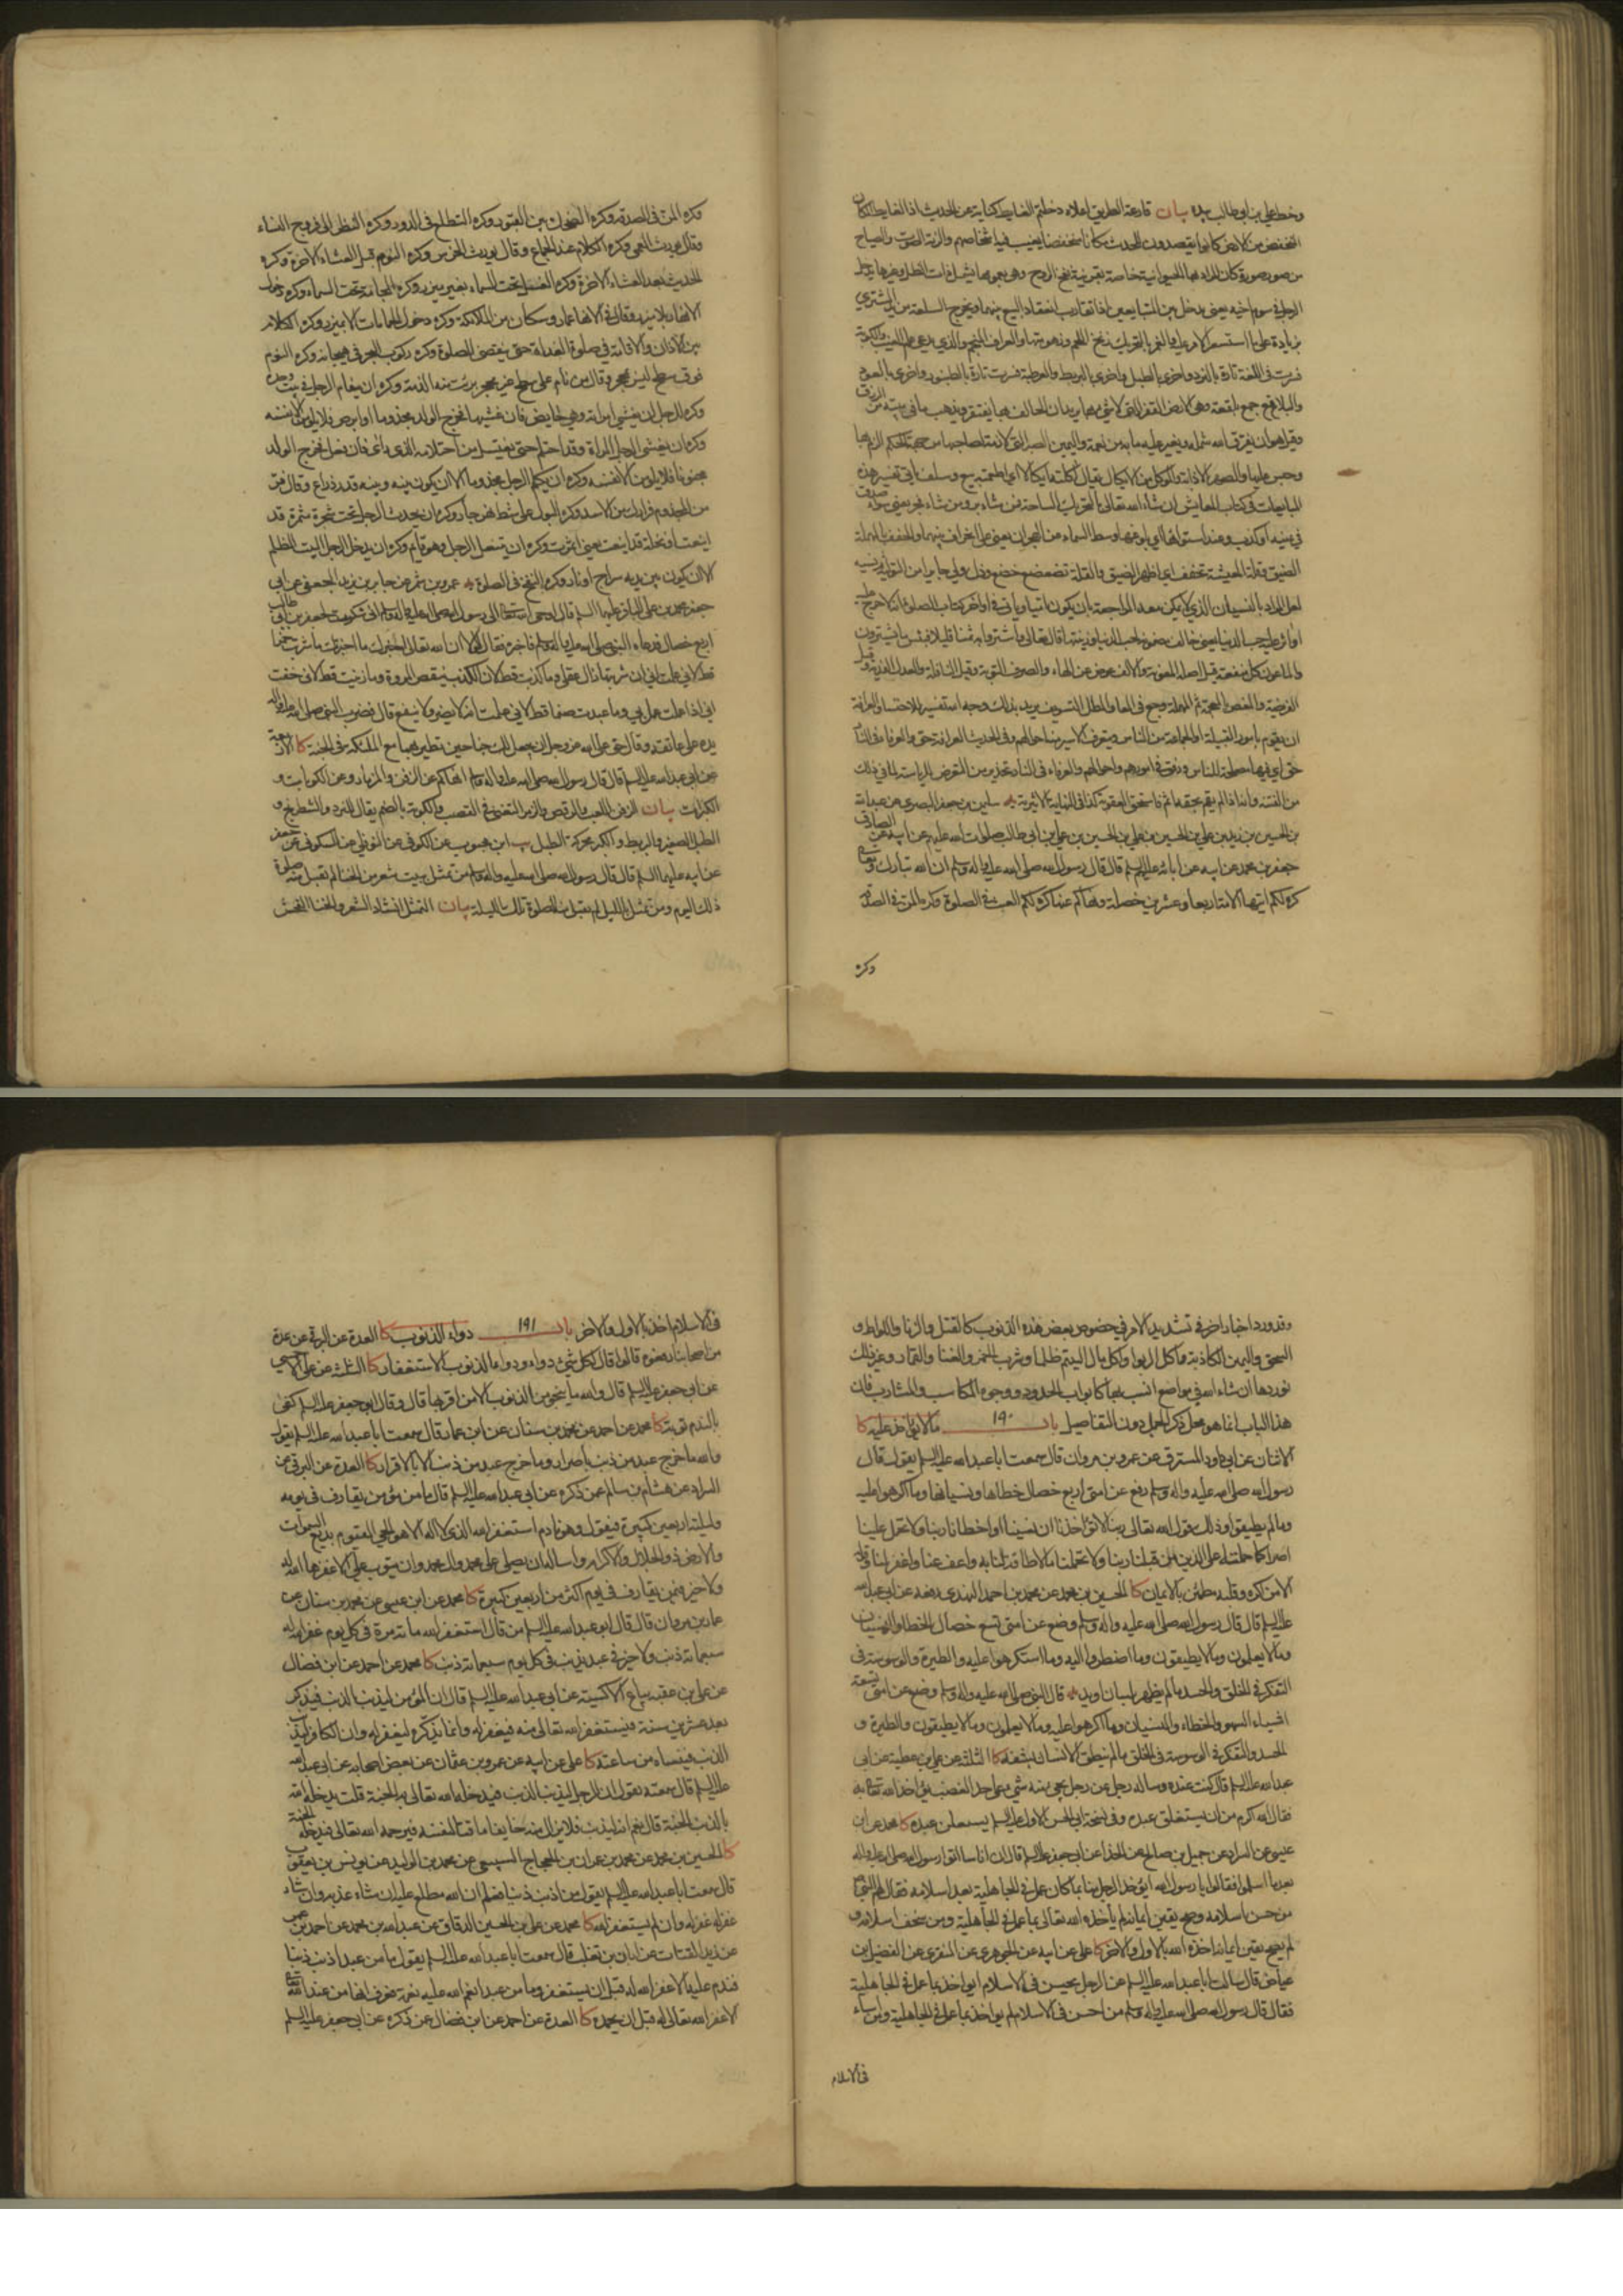 وخط علي بن أبي طالب بيده بيان قارعة الطريق اعلاه دخلتم الغايط كناية عن الحدث اذ الغايط المكان
المنخفض من الارض كانوا يقصدون للحدث مكانا منخفضا يغيب فيه اشخاصهم والرنة الصوت والصياح
من صور صورة كان المراد بها الحيوانية خاصة بقرينة نفخ الروح وهي بعمومها يشمل ذات الظل وغيرها يدخل
الرجل في سوم اخيه يعني يدخل بين المتبايعين اذا تقارب انعقاد البيع بينهما ويخرج السلعة من يد المشتري
بزيادة على ما استقر الامر عليه والغمر بالتحريك زنخ اللحم وزهومته والعراف المنجم والذي يدعي علم الغيب والكوبة
فسرت في اللغة تارة بالنرد واخرى بالطبل واخرى بالبربط والعرطبة فسرت تارة بالطنبور واخرى بالعود
والبلاقع جمع بلقعة وهي الارض القفر التي لا شيء بها يريد ان الحالف بها يفتقر ويذهب ما في بيته من الرزق
وقيل هو ان يفرق الله شمله ويغير عليه ما به من نعمة واليمين الصبر التي لازمة لصاحبها من جهة الحكم الزم بها
وحبس عليها
في يمينه او كذب وعند استوائها اي بلوغها وسط السماء
الضيق وقلة المعيشة تخفف اي اظهر الضيق والقلة تضعضع خضع وذل
لعل المراد بالنسيان الذي لا يمكن معه المراجعة بان يكون ناسيا وياتي في اواخر كتاب الصلوة انه لا حرج عليه
او اثر عليه حب الدنيا
والماعون كل منفعة
الفريضة
ان يقوم بامور القبيلة او الجماعة من الناس ويتعرف الامير منه احوالهم وفي الحديث العرافة حق والعرفاء في النار
حق اي فيها مصلحة للناس ورفق في امورهم واحوالهم والعرفاء في النار تحذير من التعرض للرياسة لما في ذلك
من الفتنة وانه اذا لم يقم بحقه اثم فاستحق العقوبة كذا في النهاية الاثيرية يه سليمن بن جعفر البصري عن عبد الله
بن الحسين بن زيد بن علي بن الحسين بن علي بن ابي طالب صلوات الله عليه عن ابيه عن الصادق
جعفر بن محمد عن ابيه عن ابائه عليهم السلم قال قال رسول الله صلى الله عليه واله وسلم ان الله تبارك وتعالى
كره لكم ايتها الامة اربعا وعشرين خصلة ونهاكم عنها كره لكم العبث في الصلوة وكره المن في الصدقة
وكره
وكره المن في الصدقة وكره الضحك بين القبور وكره التطلع في الدور وكره النظر الى فروج النساء
وقال يورث العمى وكره الكلام عند الجماع وقال يورث الخرس وكره النوم قبل العشاء الاخرة وكره
الحديث بعد العشاء الاخرة وكره الغسل تحت السماء بغير ميزر وكره المجامعة تحت السماء وكره دخول
الانهار بلا ميزر وقال في الانهار عمار وسكان من الملائكة وكره دخول الحمامات الا بميزر وكره الكلام
بين الاذان والاقامة في صلوة الغداة حتى يقضي الصلوة وكره ركوب البحر في هيجانه وكره النوم
فوق سطح ليس بمحجر وقال من نام على سطح غير محجر برئت منه الذمة وكره ان ينام الرجل في بيت وحده
وكره للرجل ان يغشى امراته وهي حايض فان غشيها فخرج الولد مجذوما او ابرص فلا يلومن الا نفسه
وكره ان يغشى الرجل المراة وقد احتلم حتى يغتسل من احتلامه الذي راى فان فعل فخرج الولد
مجنونا فلا يلومن الا نفسه وكره ان يكلم الرجل مجذوما الا ان يكون بينه وبينه قدر ذراع وقال فر
من المجذوم فرارك من الاسد وكره البول على شط نهر جار وكره ان يحدث الرجل تحت شجرة مثمرة قد
اينعت او نخلة قد اينعت يعني اثمرت وكره ان يتنعل الرجل وهو قايم وكره ان يدخل الرجل البيت المظلم
الا ان يكون بين يديه سراج او نار وكره النفخ في الصلوة يه عمرو بن شمر عن جابر بن يزيد الجعفي عن ابي
جعفر محمد بن علي الباقر عليهما السلم قال اوحى الله تعالى الى رسول الله صلى الله عليه واله وسلم اني شكرت لجعفر بن ابي طالب
اربع خصال فدعاه النبي صلى الله عليه واله وسلم فاخبره فقال لولا ان الله تعالى اخبرك ما اخبرتك ما شربت خمرا
قط لاني علمت اني ان شربتها زال عقلي وما كذبت قط لان الكذب ينقص المروة وما زنيت قط لاني خفت
اني اذا عملت عمل بي وما عبدت صنما قط لاني علمت انه لا يضر ولا ينفع قال فضرب النبي صلى الله عليه واله
يده على عاتقه وقال حق على الله عز وجل ان يجعل لك جناحين تطير بهما مع الملئكة في الجنة كا الاربعة
عن ابي عبد الله عليه السلم قال قال رسول الله صلى الله عليه واله وسلم انهاكم عن الزفن والمزمار وعن الكوبات و
الكبرات بيان الزفن اللعب والرقص والزمر التغني في القصب والكوبة بالضم يقال للنرد والشطرنج و
الطبل الصغير والبربط والكبر محركة الطبل يب ابن محبوب عن الكوفي عن النوفلي عن السكوني عن جعفر
عن ابيه عليهما السلم قال قال رسول الله صلى الله عليه واله وسلم من تمثل ببيت شعر من الخنا لم تقبل منه صلوة
ذلك اليوم ومن تمثل بالليل لم يقبل منه الصلوة تلك الليلة بيان التمثل انشاد الشعر والخنا الفحش
وقد ورد اخبار اخر في تشديد الامر في خصوص بعض هذه الذنوب كالقتل والزنا واللواط و
السحق واليمين الكاذبة واكل الربوا واكل مال اليتيم ظلما وشرب الخمر والغنا والقمار وغير ذلك
نوردها ان شاء الله في مواضع انسب بها كابواب الحدود ووجوه المكاسب والمشارب فان
هذا الباب انما هو محل ذكر الجمل دون التفاصيل باب ١٩٠ ما لا يؤاخذ عليه كا
الاثنان عن ابي داود المسترق عن عمرو بن مروان قال سمعت ابا عبد الله عليه السلم يقول قال
رسول الله صلى الله عليه واله وسلم رفع عن امتي اربع خصال خطاها ونسيانها وما اكرهوا عليه
وما لم يطيقوا وذلك قول الله تعالى ربنا لا تؤاخذنا ان نسينا او اخطانا ربنا ولا تحمل علينا
اصرا كما حملته على الذين من قبلنا ربنا ولا تحملنا ما لا طاقة لنا به واعف عنا واغفر لنا وقوله
الا من اكره وقلبه مطمئن بالايمان كا الحسين بن محمد عن محمد بن احمد النهدي رفعه عن ابي عبد الله
عليه السلم قال قال رسول الله صلى الله عليه واله وسلم وضع عن امتي تسع خصال الخطا والنسيان
وما لا يعلمون وما لا يطيقون وما اضطروا اليه وما استكرهوا عليه والطيرة والوسوسة في
التفكر في الخلق والحسد ما لم يظهر بلسان او يد يه قال النبي صلى الله عليه واله وسلم وضع عن امتي تسعة
اشياء السهو والخطاء والنسيان وما اكرهوا عليه وما لا يعلمون وما لا يطيقون والطيرة و
الحسد والتفكر في الوسوسة في الخلق ما لم ينطق الانسان بشفة كا الثلثة عن علي بن عطية عن ابي
عبد الله عليه السلم قال كنت عنده وساله رجل عن رجل يجيء منه شيء على حد الغضب يؤاخذه الله تعالى به
فقال الله اكرم من ان يستغلق عبده وفي نسخة ابي الحسن الاول عليه السلم يستقلق عبده كا محمد عن ابن
عيسى عن السراد عن جميل بن صالح عن الحذاء عن ابي جعفر عليه السلم قال ان اناسا اتوا رسول الله صلى الله عليه واله
بعد ما اسلموا فقالوا يا رسول الله ايؤخذ الرجل منا بما كان عمل في الجاهلية بعد اسلامه فقال لهم النبي
من حسن اسلامه وصح يقين ايمانه لم ياخذه الله تعالى بما عمل في الجاهلية ومن سخف اسلامه و
لم يصح يقين ايمانه اخذه الله بالاول والاخر كا علي عن ابيه عن الجوهري عن المنقري عن الفضيل بن
عياض قال سالت ابا عبد الله عليه السلم عن الرجل يحسن في الاسلام ايؤاخذ بما عمل في الجاهلية
فقال قال رسول الله صلى الله عليه واله وسلم من احسن في الاسلام لم يؤاخذ بما عمل في الجاهلية ومن اساء
في الاسلام
في الاسلام اخذ بالاول والاخر باب ١٩١ دواء الذنوب كا العدة عن البرقي عن عدة
من اصحابنا رفعوه قالوا قال لكل شيء دواء ودواء الذنوب الاستغفار كا الثلثة عن علي الاحمسي
عن ابي جعفر عليه السلم قال والله ما ينجو من الذنوب الا من اقر بها قال وقال ابو جعفر عليه السلم كفى
بالندم توبة كا محمد عن احمد عن محمد بن سنان عن ابن عمار قال سمعت ابا عبد الله عليه السلم يقول
والله ما خرج عبد من ذنب باصرار وما خرج عبد من ذنب الا بالاقرار كا العدة عن البرقي عن
السراد عن هشام بن سالم عمن ذكره عن ابي عبد الله عليه السلم قال ما من مؤمن يقارف في يومه
وليلته اربعين كبيرة فيقول وهو نادم استغفر الله الذي لا اله الا هو الحي القيوم بديع السموات
والارض ذو الجلال والاكرام واساله ان يصلي على محمد وال محمد وان يتوب علي الا غفرها الله له
ولا خير فيمن يقارف في يوم اكثر من اربعين كبيرة كا محمد عن ابن عيسى عن محمد بن سنان عن
عمار بن مروان قال قال ابو عبد الله عليه السلم من قال استغفر الله مائة مرة في كل يوم غفر الله له
سبعمائة ذنب ولا خير في عبد يذنب في كل يوم سبعمائة ذنب كا محمد عن احمد عن ابن فضال
عن علي بن عقبة بياع الاكسية عن ابي عبد الله عليه السلم قال ان المؤمن ليذنب الذنب فيذكر
بعد عشرين سنة فيستغفر الله تعالى منه فيغفر له وانما يذكره ليغفر له وان الكافر ليذنب
الذنب فينساه من ساعته كا علي عن ابيه عن عمرو بن عثمان عن بعض اصحابه عن ابي عبد الله
عليه السلم قال سمعته يقول ان الرجل ليذنب الذنب فيدخله الله تعالى به الجنة قلت يدخله الله
بالذنب الجنة قال نعم انه ليذنب فلا يزال منه خايفا ماقتا لنفسه فيرحمه الله تعالى فيدخله الجنة
كا الحسين بن محمد عن محمد بن عمران بن الحجاج السبيعي عن محمد بن الوليد عن يونس بن يعقوب
قال سمعت ابا عبد الله عليه السلم يقول من اذنب ذنبا فعلم ان الله مطلع عليه ان شاء عذبه وان شاء
غفر له غفر له وان لم يستغفر الله كا محمد عن علي بن الحسين الدقاق عن عبد الله بن محمد عن احمد بن عمر
عن زيد القتات عن ابان بن تغلب قال سمعت ابا عبد الله عليه السلم يقول ما من عبد اذنب ذنبا
فندم عليه الا غفر الله له قبل ان يستغفر وما من عبد انعم الله عليه نعمة فعرف انها من عند الله تعالى
الا غفر الله تعالى له قبل ان يحمده كا العدة عن احمد عن ابن فضال عمن ذكره عن ابي جعفر عليه السلم